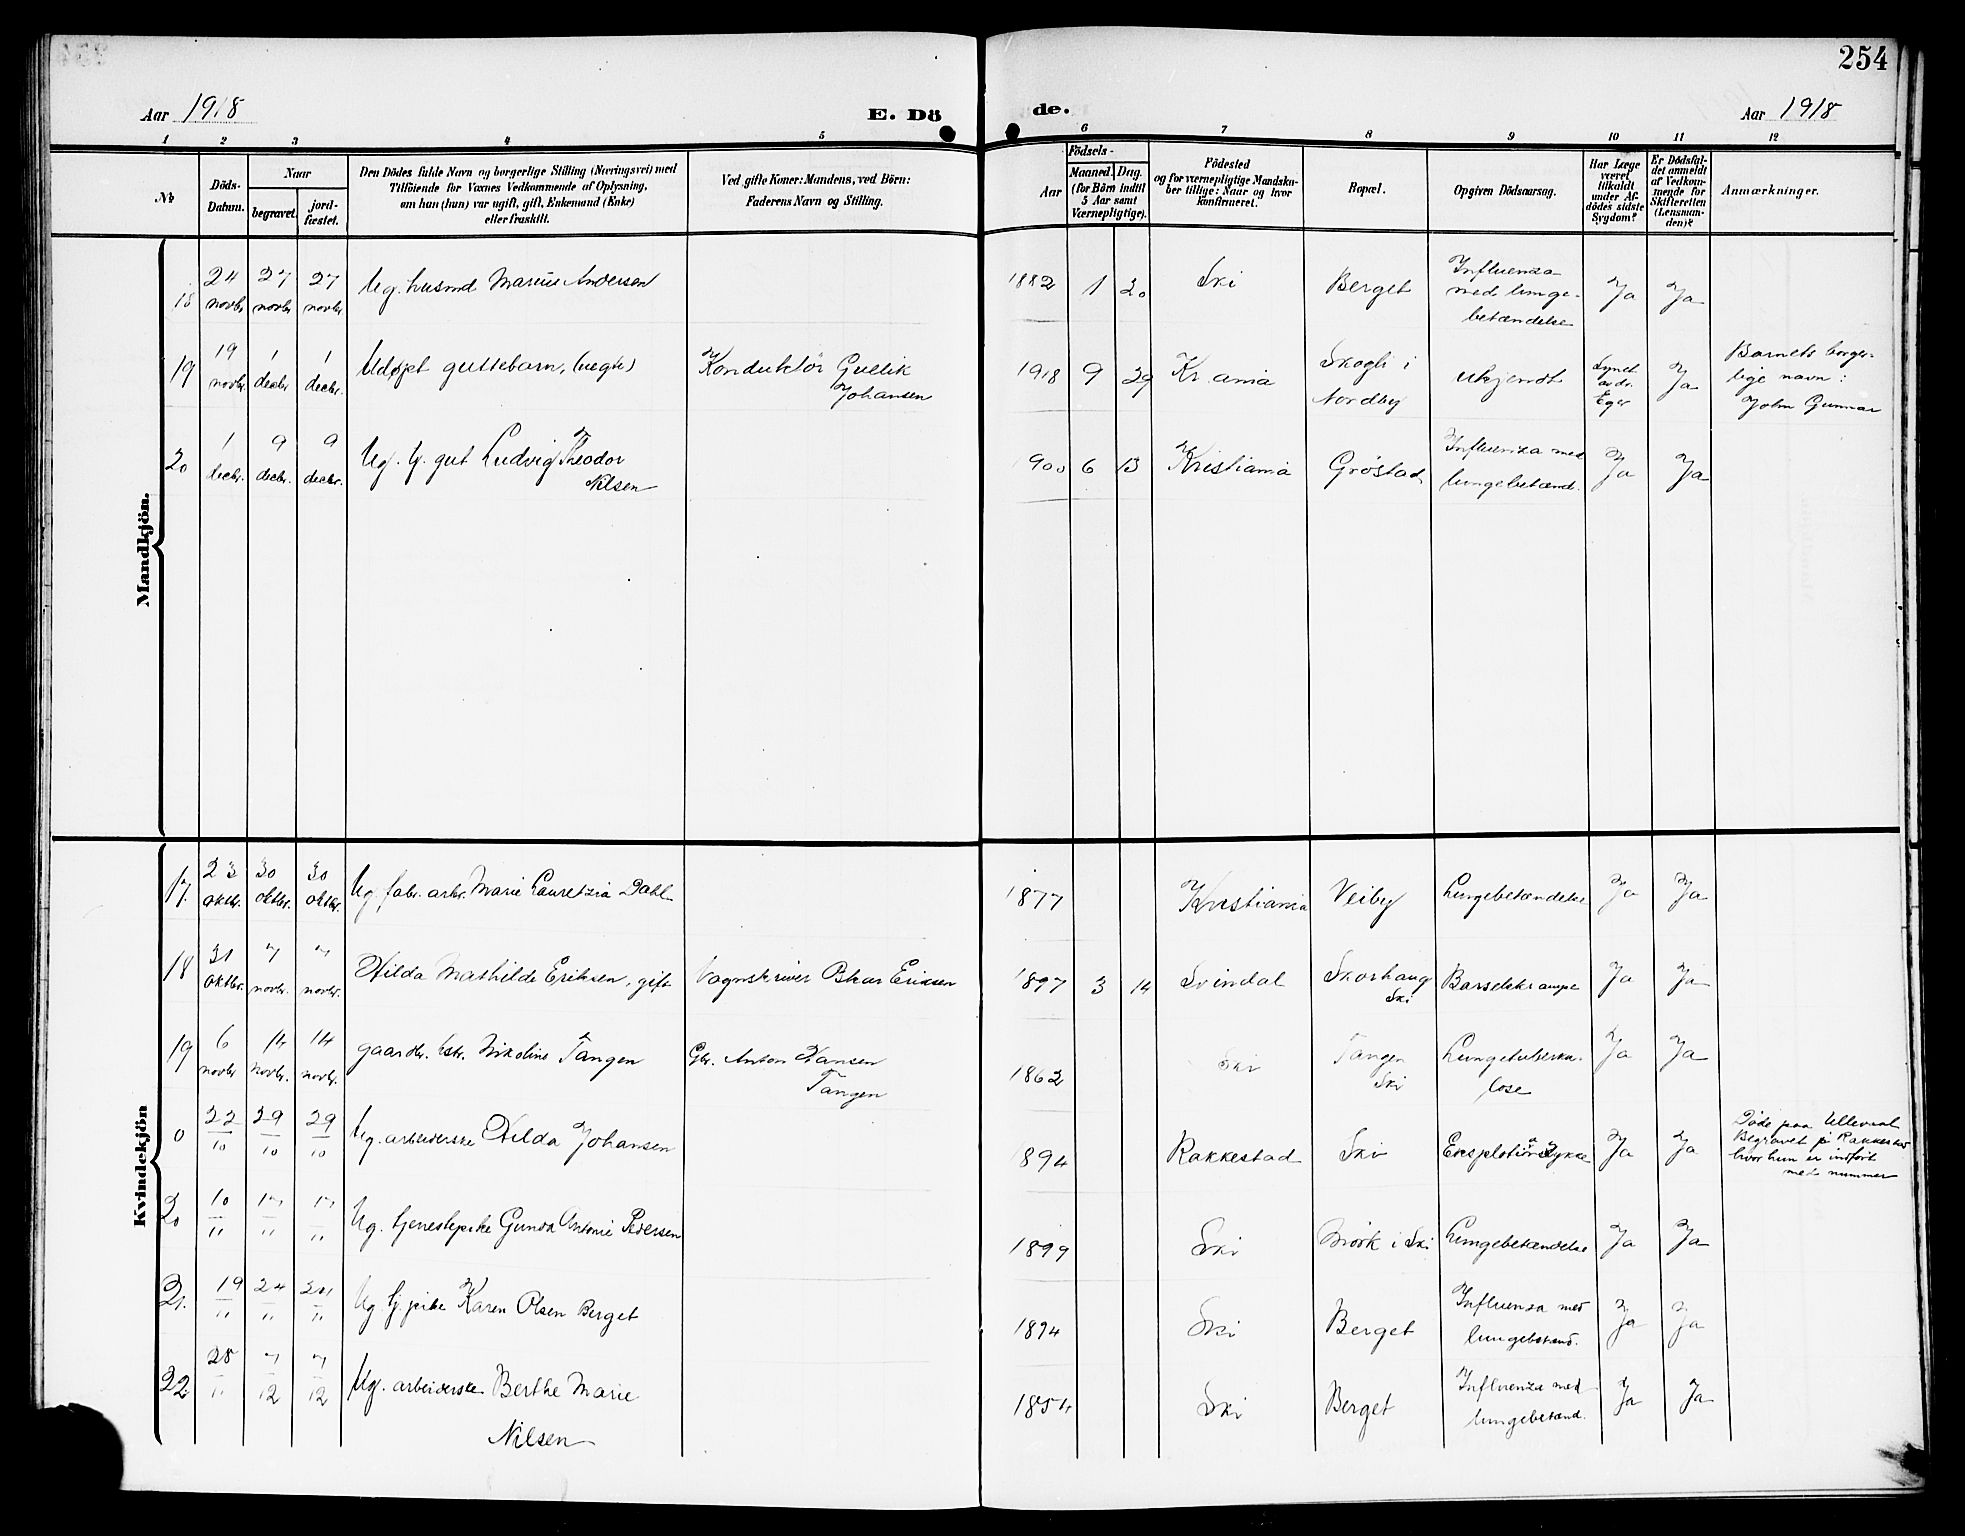 254
Aar 1918
E. Dö
de.
Aar 1918
1 2 3 4 5 6 7 8 9 10 11 12
No
Döds-
Datum.
Naar
begravet.
jord-
fæstet.
Den Dödes fulde Navn og borgerlige Stilling (Næringsvei) med
Tilföiende for Voxnes Vedkommende af Oplysning,
om han (hun) var ugift, gift, Enkemand (Enke)
eller fraskilt.
Ved gifte Koner: Mandens, ved Börn:
Faderens Navn og Stilling.
Födsels-
Aar
Maaned. Dag.
(for Börn indtil
5 Aar samt
Værnepligtige).
Födested
og for værnepligtige Mandska-
ber tillige: Naar og hvor
konfirmeret.
Bopæl.
Opgiven Dödsaarsag.
Har Læge
været
tilkaldt
under Af-
dödes sidste
Sygdom?
Er Dödsfal-
det anmeldt
af Vedkom-
mende for
Skifteretten
(Lensman-
den)?
Anmærkninger.
Mandkjön.
18
24 novbr
27 novbr
27 novbr
Ug. husmd Marius Andersen
1882 1 20
Ski
Berget
Influenza
med lunge-
betændelse
Ja
Ja
19
19 novbr
1 decbr
1 decbr.
Udøpt guttebarn, (uegte)
Konduktör Gullik
Johansen
1918 9 29
Kr.ania
Skogli i
Nordby
ukjendt
Synet
av dr.
Eger
Ja
Barnets borger-
lige navn:
John Gunnar
20
1 decbr.
9 decbr.
9 decbr.
Ug. tj. gut Ludvig Theodor
Nilsen
1900 6 13
Kristiania
Gröstad
Influenza med
lungebetænd.
Ja
Ja
Kvindekjön
17.
23 oktbr.
30 oktbr.
30 oktbr.
Ug. fabr. arb. Marie Lauretzia Dahl
1877
Kristiania
Veiby
Lungebetændelse
Ja
Ja
18
31 oktbr.
7 novbr.
7 novbr.
Hilda Mathilde Eriksen, gift
Vognskriver Oskar Eriksen
1897 3 14
Svindal
Skorhaug
Ski
Barselskrampe
Ja
Ja
19
6 novbr
14 novbr.
14 novbr.
gaardbr. hstr. Nikoline Tangen
Gbr. Anton Hansen
Tangen
1862
Ski
Tangen
Ski
Lungetuberku-
lose
Ja
Ja
0
22/10
29/10
29/10
Ug. arbeiderske Hilda Johansen
1894
Rakkestad
Ski
Eksplotionsulykke
Ja
Ja
Döde paa Ullevaal
Begravet på Rakkestad
hvor hun er indfört
med nummer
20
10/11
17/11
17/11
Ug. tjenestepike Gunda Antonie Pedersen
1899
Ski
Mörk i Ski
Lungebetændelse
Ja
Ja
21.
19/11
24/11
24/11
Ug. tj. pike Karen Olsen Berget
1894
Ski
Berget
Influenza med
lungebetænd.
Ja
Ja
22
28/11
7/12
7/12
Ug. arbeiderske Berthe Marie
Nilsen
1854
Ski
Berget
Influenza med
lungebetænd.
Ja
Ja